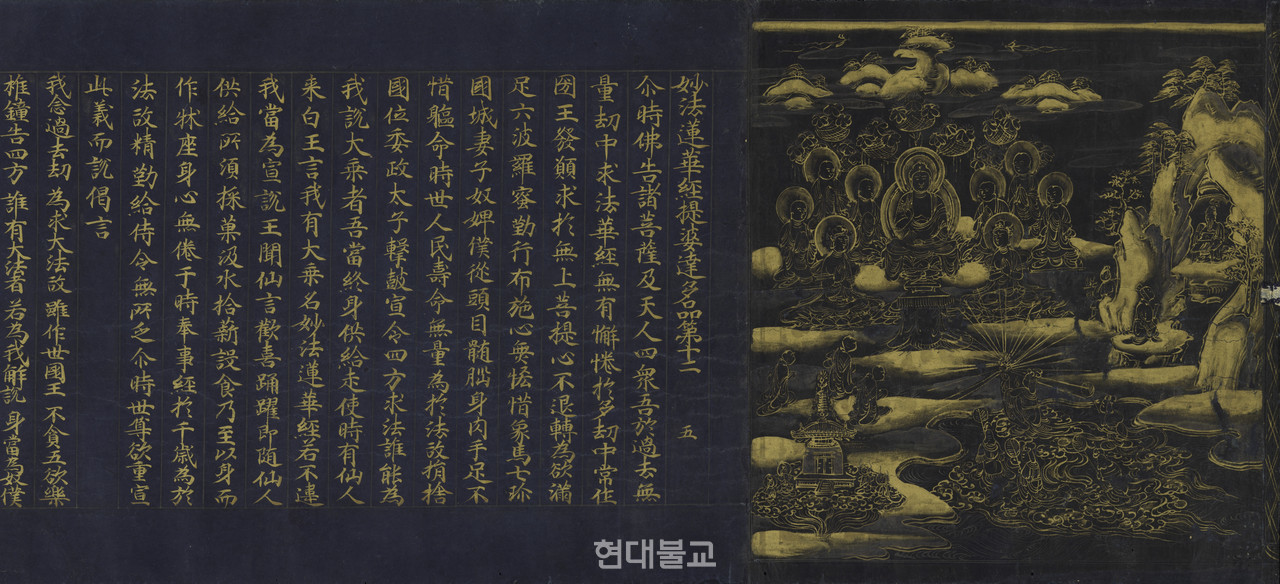 妙法蓮華經提婆達多品第十二 五
尒時佛告諸菩薩及天人四衆吾於過去無
量劫中求法華經無有懈惓於多劫中常作
國王發願求於無上菩提心不退轉為欲滿
足六波羅蜜勤行布施心無悋惜象馬七珎
國城妻子奴婢僕從頭目髄腦身肉手足不
惜軀命時世人民壽命無量為於法故捐捨
國位委政太子擊鼓宣令四方求法誰能為
我說大乘者吾當終身供給走使時有仙人
来白王言我有大乗名妙法蓮華經若不違
我當為宣說王聞仙言歡喜踊躍即随仙人
供給所須採菓汲水拾薪設食乃至以身而
作牀座身心無倦于時奉事經於千歳為於
法故精勤給侍令無所乏尒時世尊欲重宣
此義而說偈言
我念過去劫 為求大法故 雖作世國王 不貪五欲樂
椎鐘告四方 誰有大法者 若為我解說 身當為奴僕
현대불교